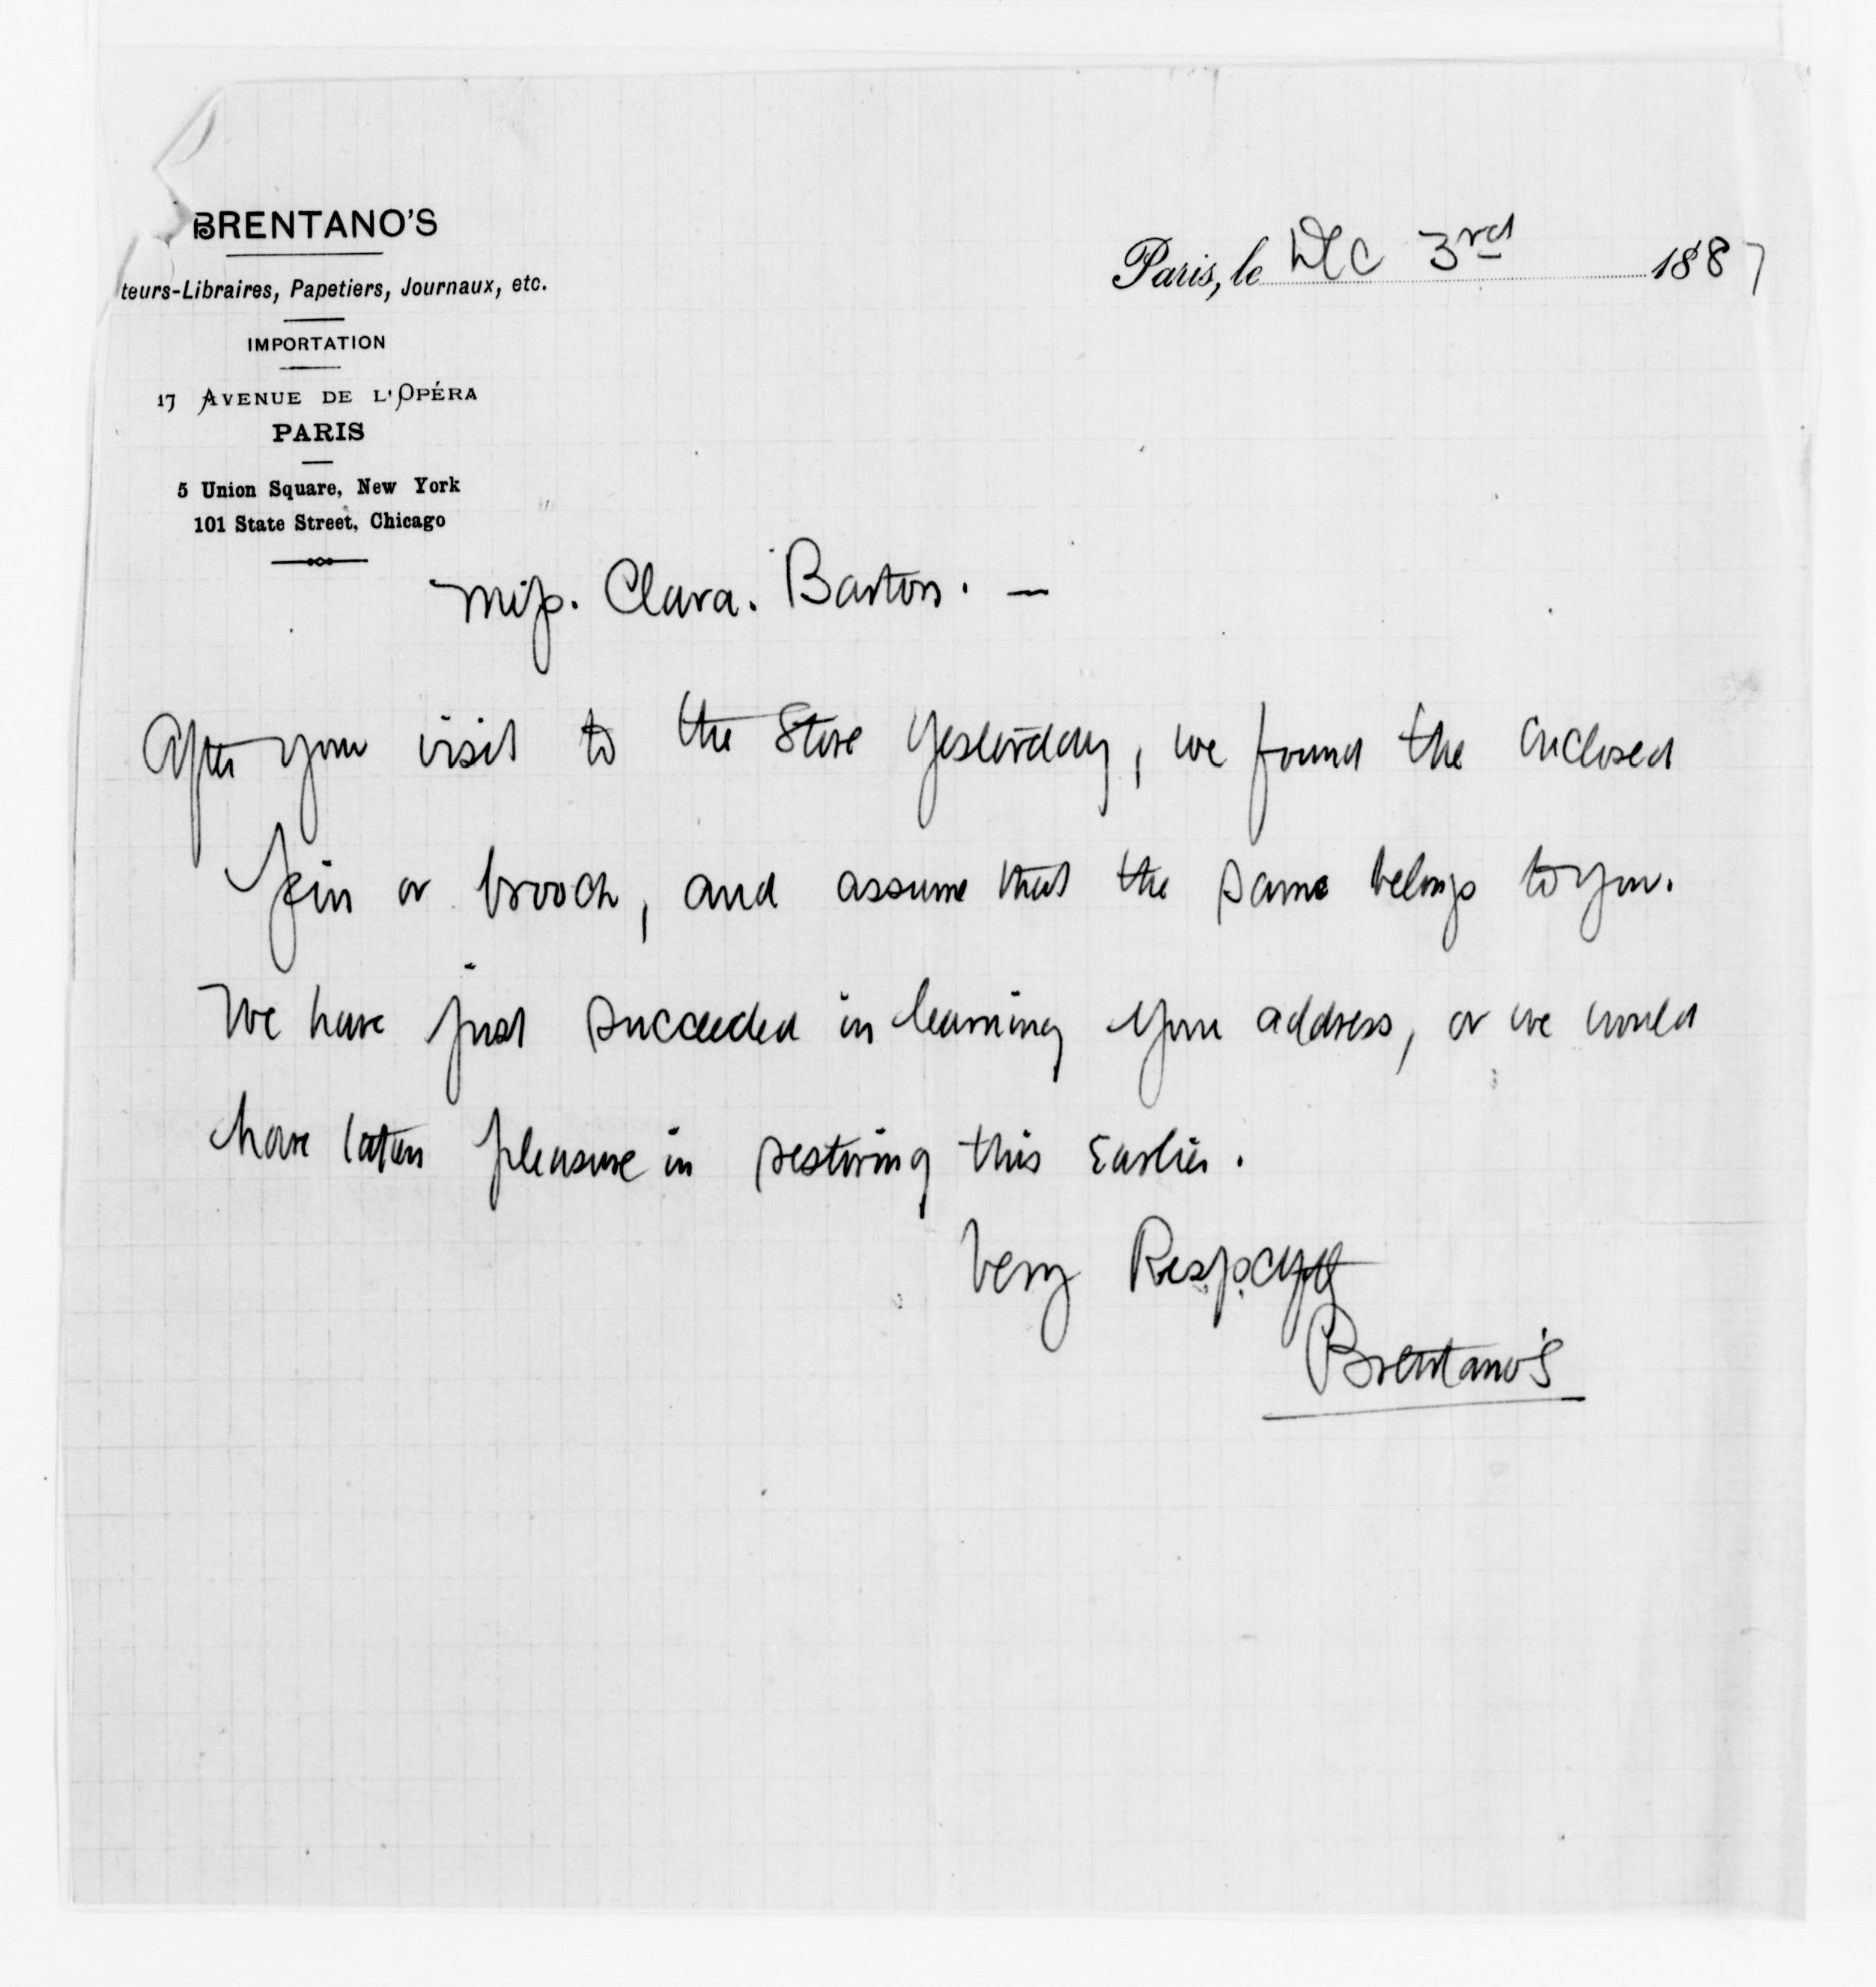 BRENTANO'S
teurs-Libraires, Papetiers, Journaux, etc.
IMPORTATION
17 AVENUE DE L'OPÉRA
PARIS
5 Union Square, New York
101 State Street, Chicago
Paris, le Dec 3rd 1887
Miss. Clara. Barton. —
After your visit to the Store yesterday, we found the enclosed
pin or brooch, and assume that the same belongs to you.
We have just succeeded in learning your address, or we would
have taken pleasure in restoring this Earlier.
Very Respectfy
Brentano's